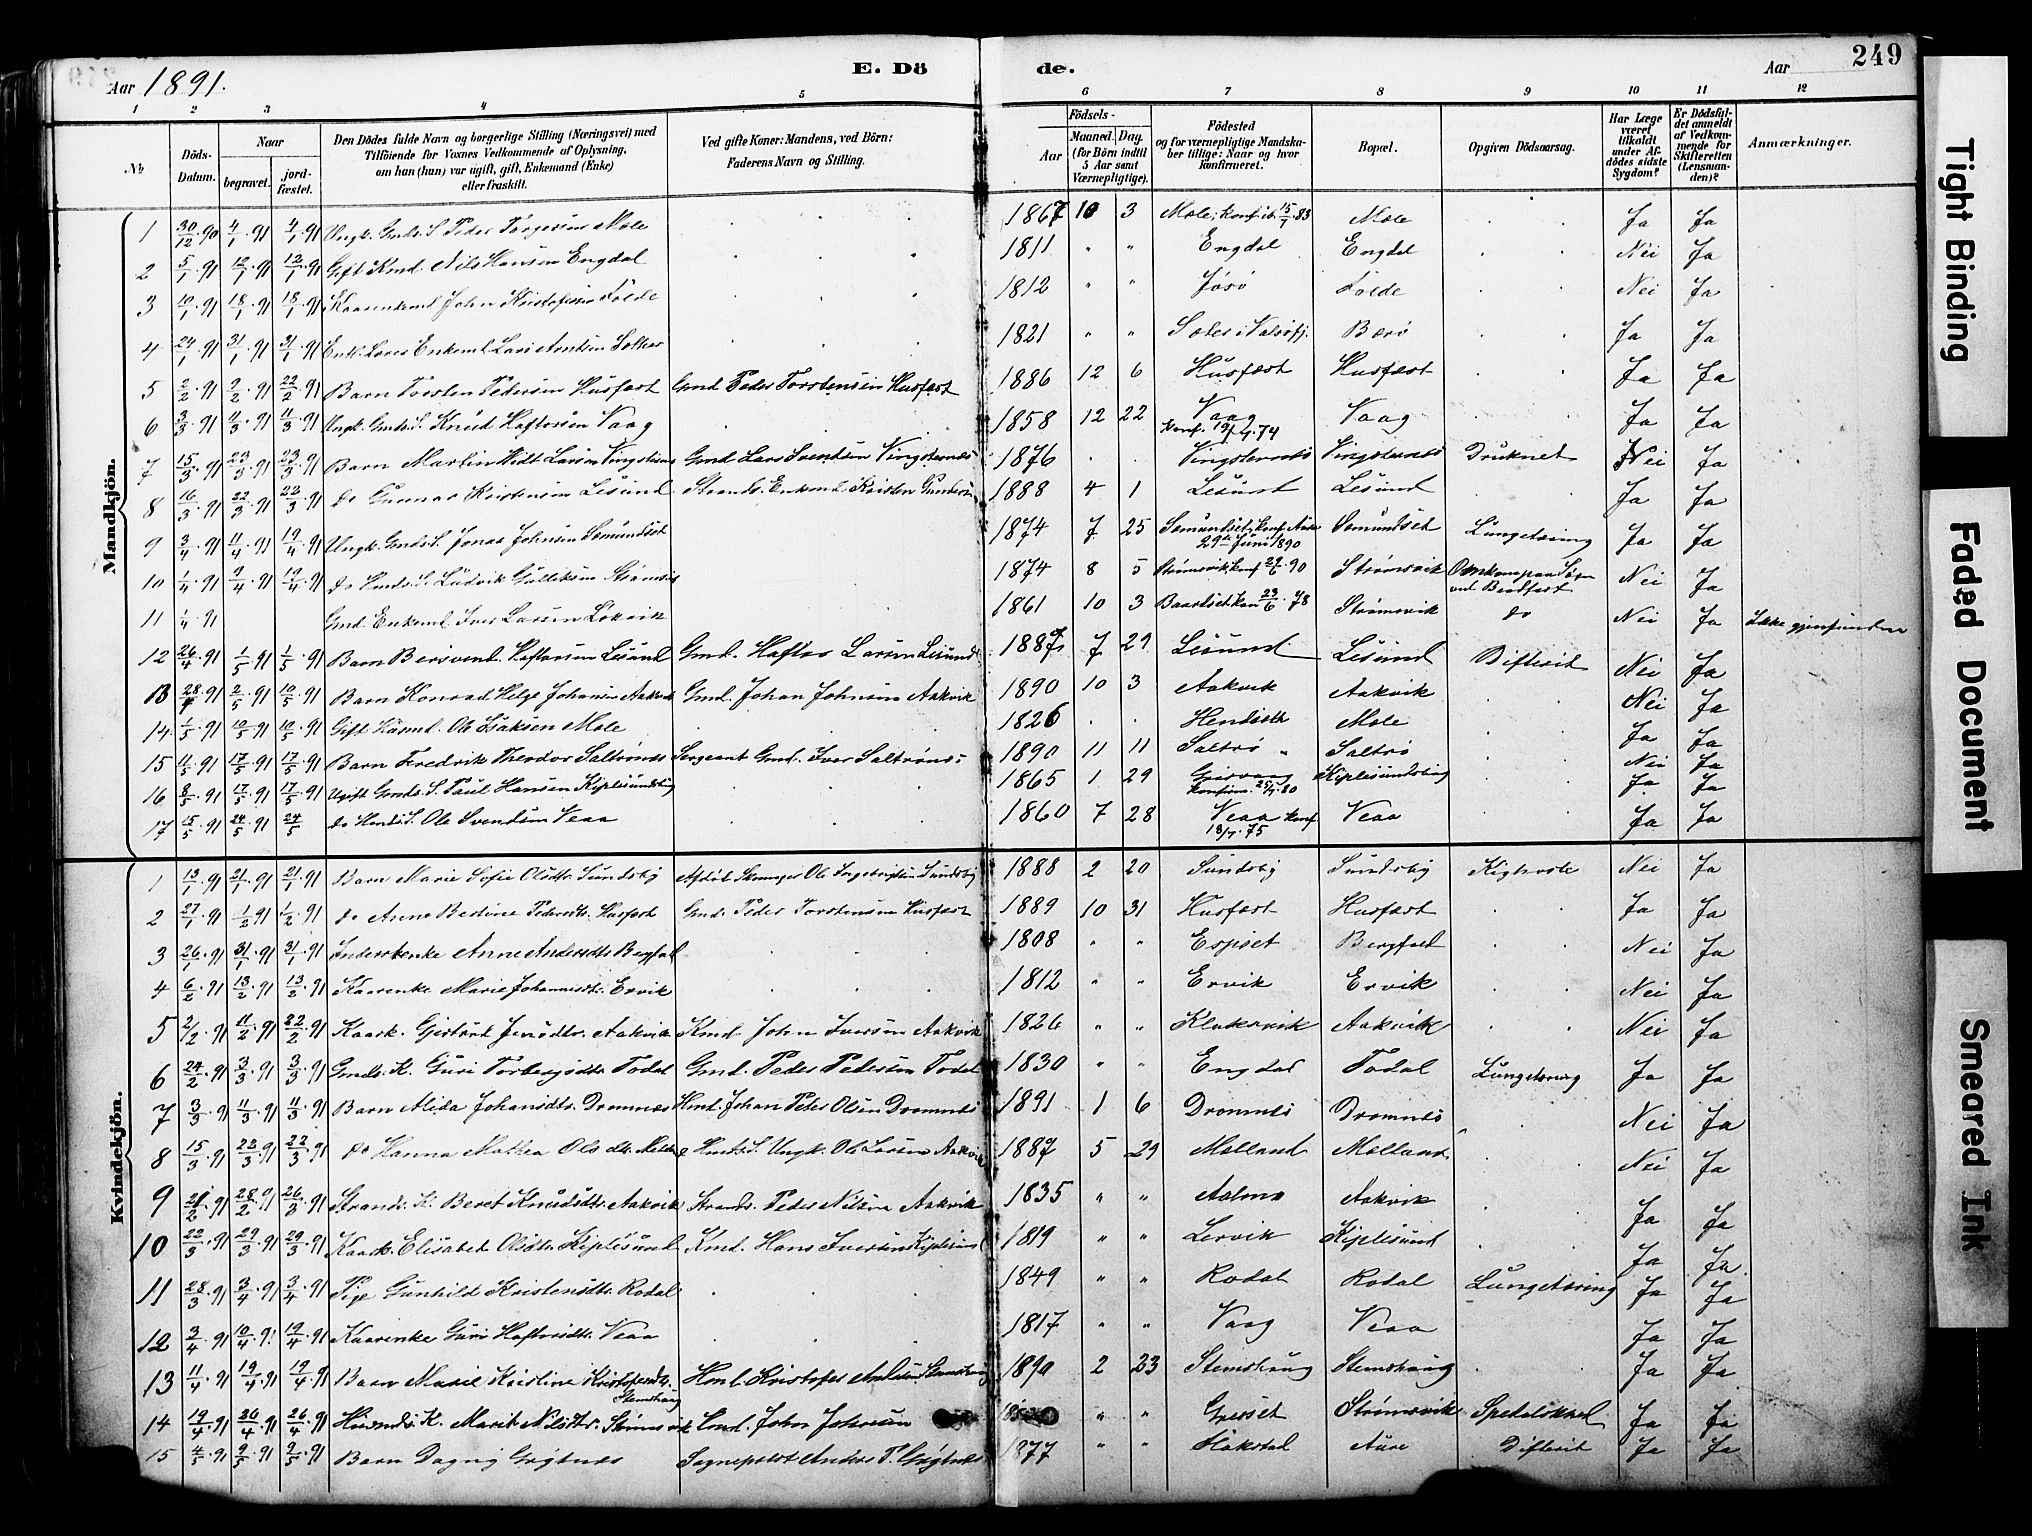 249
Aar 1891. E. Dö de. Aar
1 2 3 4 5 6 7 8 9 10 11 12
№
Döds-Datum.
Naar
begravet.
jordfæstet.
Den Dödes fulde Navn og borgerlige Stilling (Næringsvei) med
Tilföiende for Voxnes Vedkommende af Oplysning,
om han (hun) var ugift, gift, Enkemand (Enke)
eller fraskilt.
Ved gifte Koner: Mandens, ved Börn:
Faderens Navn og Stilling.
Födsels-
Aar
Maaned. Dag.
(for Börn indtil
5 Aar samt
Værnepligtige).
Födested
og for værnepligtige Mandska-
ber tillige: Naar og hvor
konfirmeret.
Bopæl.
Opgiven Dödsaarsag.
Har Læge
været
tilkaldt
under Af-
dödes sidste
Sygdom?
Er Dödsfal-
det anmeldt
af Vedkom-
mende for
Skifteretten
(Lensman-
den)?
Anmærkninger.
Mandkjön.
1 30/12.90 4/1.91 4/1.91 Ungk. Gmds. S. Peder Torgersen Mole 1867 10 3 Mole; konf. ib. 15/7.83 Mole Ja Ja
2 5/1.91 12/1.91 12/1.91 Gift Kmd. Nils Hansen Engdal 1811 " " Engdal Engdal Nei Ja
3 10/1.91 18/1.91 18/1.91 Kaarenkemd John Kristofersen Folde 1812 " " Jøsø Folde Nei Ja
4 24/1.91 31/1.91 31/1.91 Enkemd. Lars Arntsen 1821 " " Bærø Ja Ja
5 2/2.91 9/2.91 22/2.91 Barn Torsten Pedersen Husfæst Gmd Peder Torstensen Husfæst 1886 12 6 Husfæst Husfæst Ja Ja
6 3/3.91 11/3.91 11/3.91 Ungk. Gmds. S. Knud Haftorsen Vaag 1858 12 22 Vaag Vaag Ja Ja
7 15/3.91 23/3.91 23/3.91 Barn Martin Hidt Larsen Vingsternes Gmd Lars Svendsen Vingsternes 1876 Vingsternes Vingsternes Druknet Nei Ja
8 16/3.91 22/3.91 22/3.91 do Gunnar Kristensen Lesund Strands. Enkemd. Kristen Gundersen 1888 4 1 Lesund Lesund Ja Ja
9 3/4.91 11/4.91 19/4.91 Ungk. Gmds. S. Jonas Johnsen Semundset 1874 7 25 Semundset, konf. Aure 29de Juni 1890 Semundset Lungetæring Ja Ja
10 1/4.91 9/4.91 19/4.91 do Hmds. S. Ludvik Gulliksen Strømsvik 1874 8 5 Strømsvik, konf 29/6.90 Strømsvik Omkom paa Søen ved Baadfart Nei Ja
11 1/4.91 Gmd. Enkemd. Iver Larsen Løkvik 1861 10 3 Baardset kon 23/6.78 Strømsvik do Nei Ja Ikke gjenfunden
12 26/4.91 1/5.91 1/5.91 Barn Bersvend Haftorsen Lesund Gmd. Haftor Larsen Lesund 1887 7 29 Lesund Lesund Difterit Nei Ja
13 28/4.91 2/5.91 10/5.91 Barn Konrad Helge Johansen Aakvik Gmd. Johan Johnsen Aakvik 1890 10 3 Aakvik Aakvik Nei Ja
14 1/5.91 10/5.91 10/5.91 Gift Husmd. Ole Isaksen Mole 1826 Hendset Mole Ja Ja
15 11/5.91 17/5.91 17/5.91 Barn Fredrik Theodor Saltrønes Sergeant Gmd. Iver Saltrønes 1890 11 11 Saltrø Saltrø Nei Ja
16 8/5.91 17/5.91 17/5.91 Ugift Gmds. S. Paul Hansen Kiplesundsbug 1865 1 29 Grisvaag konfirm. 25/7.80 Kiplesundsbug Ja Ja
17 15/5.91 24/5.91 24/5 do Hmds. S. Ole Svendsen Veaa 1860 7 28 Veaa konf 18/7.75 Veaa Ja Ja
Kvindekjön.
1 13/1.91 21/1.91 21/1.91 Barn Marie Sofie Olsdtr. Sundsby Afdøde Skomager Ole Ingebrigtsen Sundsby 1888 2 20 Sundsby Sundsby Kighoste Nei Ja
2 27/1.91 1/2.91 1/2.91 do Anne Bertine Pedersdtr. Husfæst Gmd. Peder Torstensen Husfæst 1889 10 31 Husfæst Husfæst Ja Ja
3 26/1.91 31/1.91 31/1.91 Inderstenke Anne Andersdtr. Bergfall 1808 " " Espset Bergfall Nei Ja
4 6/2.91 13/2.91 13/2.91 Kaarenke Marie Johannesdtr. Ervik 1812 " " Ervik Ervik Nei Ja
5 2/2.91 11/2.91 22/2.91 Kaark. Gjertrud Jensdtr. Aakvik Kmd. John Iversen Aakvik 1826 " " Klaksvik Aakvik Nei Ja
6 24/2.91 3/3.91 3/3.91 Gmds. K. Guri Torbergsdtr. Todal Gmd. Peder Pedersen Todal 1830 " " Engdal Todal Lungetæring Ja Ja
7 3/3.91 11/3.91 11/3.91 Barn Alida Johansdtr. Dromnes Hmd. Johan Peter Olsen Dromnes 1891 1 6 Dromnes Dromnes Nei Ja
8 15/3.91 22/3.91 22/3.91 do Hanna Mathea Olsdtr. Melland Hmds. S. Ungk. Ole Larsen Aakvik 1887 5 29 Melland Melland Nei Ja
9 21/2.91 28/2.91 26/3.91 Strands. K. Beret Knudsdtr. Aakvik Strands. Peder Nilsen Aakvik 1835 " " Aalmo Aakvik Ja Ja
10 22/3.91 29/3.91 29/3.91 Kaark. Elisabet Olsdtr. Kiplesund Kmd. Hans Iversen Kiplesund 1819 " " Lervik Kiplesund Ja Ja
11 28/3.91 3/4.91 3/4.91 Pige Gunhild Kristensdtr. Rodal 1849 " " Rodal Rodal Lungetæring Ja Ja
12 3/4.91 10/4.91 19/4.91 Kaarenke Guri Haftorsdtr. Veaa 1817 " " Vaag Veaa Ja Ja
13 11/4.91 19/4.91 19/4.91 Barn Marie Kristine Kristofersdtr. Stemshaug Hmd. Kristofer Stemshaug 1890 2 23 Stemshaug Stemshaug Ja Ja
14 19/4.91 26/4.91 26/4.91 Husmds. K. Marit Nilsdtr. Strømsvik Gmd. John Johnsen " " Gresset Strømsvik Spedalskhed Ja Ja
15 4/5.91 9/5.91 9/5.91 Barn Dagny Grytnes Sogneprest Anders P. Grytnes 1877 " " Hakstad Aure Difterit Ja Ja
Tight Binding
Faded Document
Smeared Ink